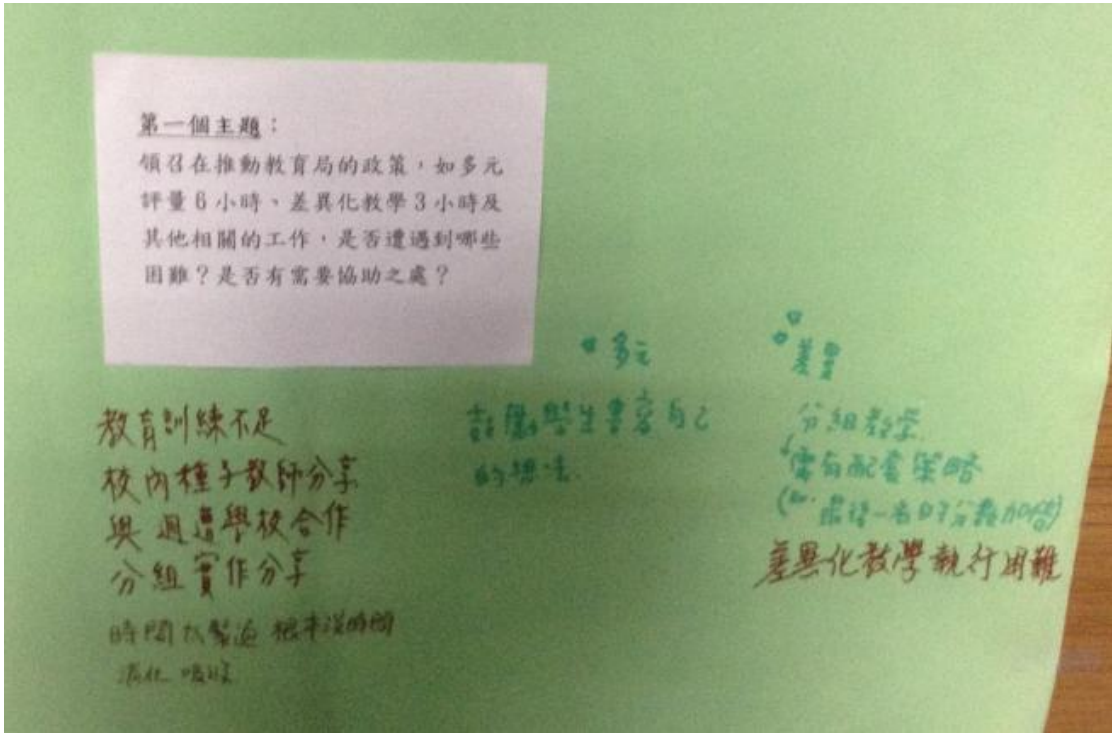 第一個主題：
領召在推動教育局的政策，如多元
評量6小時、差異化教學3小時及
其他相關的工作，是否遭遇到哪些
困難？是否有需要協助之處？
教育訓練不足
校內種子教師分享
與週遭學校合作
分組實作分享
時間太緊迫 根本沒時間
消化 吸收
多元
鼓勵學生書寫自己
的想法
差異
分組教學
需有配套策略
(如：最後一名的分數加倍)
差異化教學執行困難